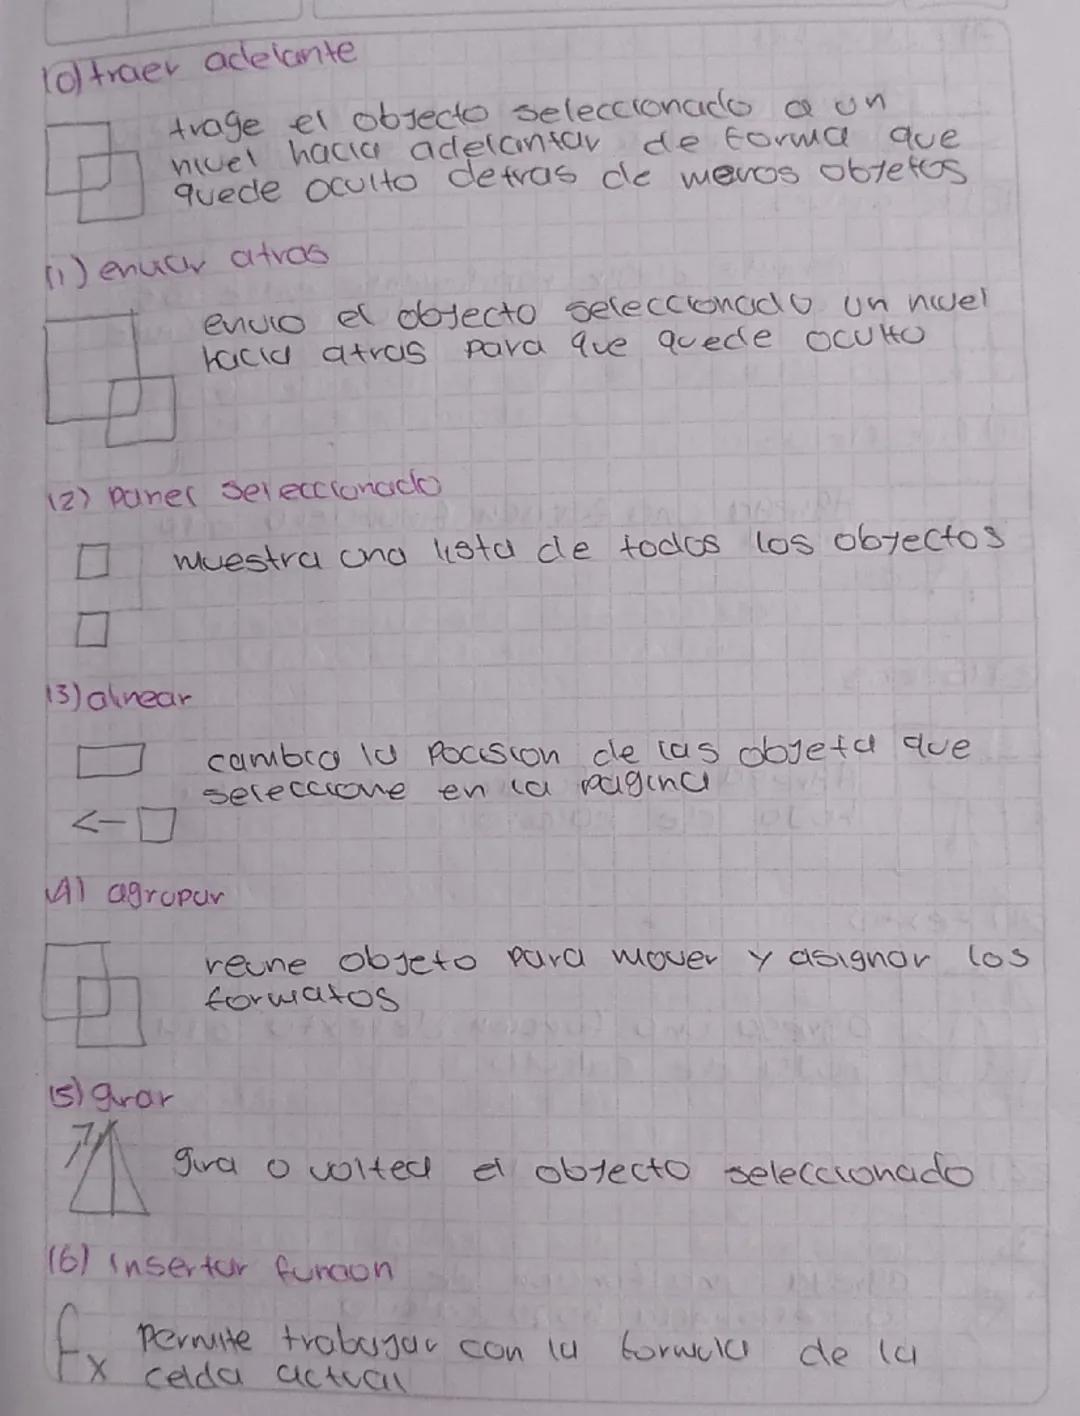 10) traer adelante
trage el objecto seleccionado a un
nivel hacia adelantar de forma que
quede oculto detras de menos objetos
11) enviar atras
envio el objecto seleccionado un nivel
hacia atras para que quede oculto
12) panel seleccionado
muestra una lista de todos los objectos
13) alinear
cambia la pocision de las objeta que
seleccione en la pagina
14) agrupar
reune objeto para mover y asignar los
formatos
15) girar
gira o voltea el objecto seleccionado
16) insertar funcion
fx permite trabajar con la formula de la
celda actual